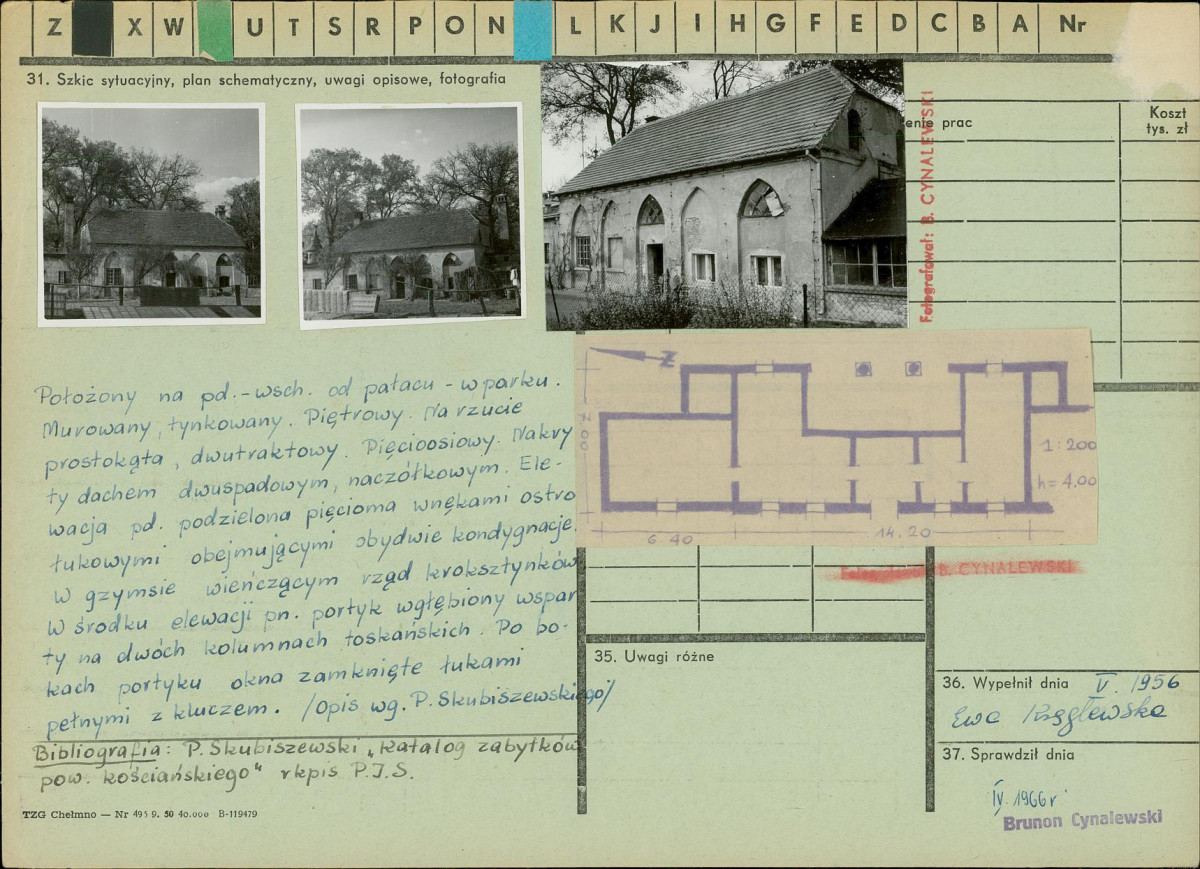 Z X W U T S R P O N L K J I H G F E D C B A Nr
31. Szkic sytuacyjny, plan schematyczny, uwagi opisowe, fotografia
enie prac
Koszt
tys. zł
Fotografował: B. CYNALEWSKI
Położony na pd.-wsch. od pałacu - w parku.
Murowany, tynkowany. Piętrowy. Na rzucie
prostokąta, dwutraktowy. Pięcioosiowy. Nakry
ty dachem dwuspadowym, naczółkowym. Ele-
wacja pd. podzielona pięcioma wnękami ostro
łukowymi obejmującymi obydwie kondygnacje.
W gzymsie wieńczącym rząd kroksztynków
W środku elewacji pn. portyk wgłębiony wspar
ty na dwóch kolumnach toskańskich. Po bo-
kach portyku okna zamknięte łukami
pełnymi z kluczem. /Opis wg. P. Skubiszewskiego/
Bibliografia: P. Skubiszewski „Katalog zabytków
pow. kościańskiego" rkpis P.I.S.
TZG Chełmno — Nr 495 9. 50 40.000 B-119479
Z
1:200
h=4.00
6.40
14.20
B. CYNALEWSKI
35. Uwagi różne
36. Wypełnił dnia V. 1956
Ewa Kręglewska
37. Sprawdził dnia
IV. 1966r
Brunon Cynalewski